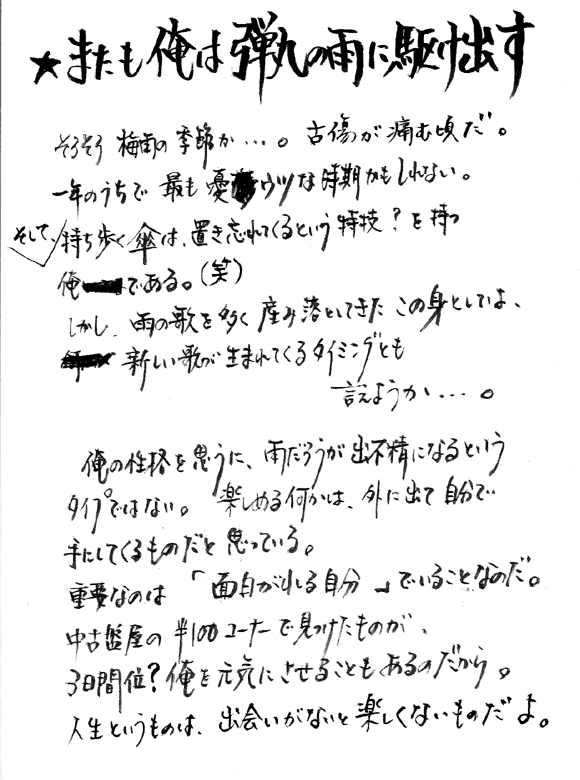 ★またも俺は弾丸の雨に駆け出す
そろそろ梅雨の季節か…。古傷が痛む頃だ。
一年のうちで最も憂ウツな時期かもしれない。
そして、持ち歩く傘は、置き忘れてくるという特技？を持つ
俺である。(笑)
しかし、雨の歌を多く産み落としてきたこの身としては、
新しい歌が生まれてくるタイミングとも
言えようか…。
俺の性格を思うに、雨だろうが出不精になるという
タイプではない。楽しめる何かは、外に出て自分で
手にしてくるものだと思っている。
重要なのは「面白がれる自分」でいることなのだ。
中古盤屋の¥100コーナーで見つけたものが、
3日間位？俺を元気にさせることもあるのだから。
人生というものは、出会いがないと楽しくないものだよ。